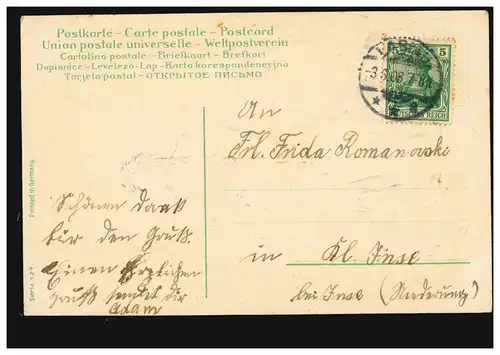 Postkarte - Carte postale - Postcard
Union postale universelle - Weltpostverein
Cartolina postale - Briefkaart - Brefkort
Dopisnice - Levelezö-Lap - Karta korespondencyjna
Tarjeta postal - ОТКРЫТОЕ ПИСЬМО
5
An
Frl. Frida Romanowski
in Kl. Inse
bei Inse (Niederung)
Schönen Dank
für den Gruß.
Einen herzlichen
Gruß sendet dir
Adam
Printed in Germany.
Serie